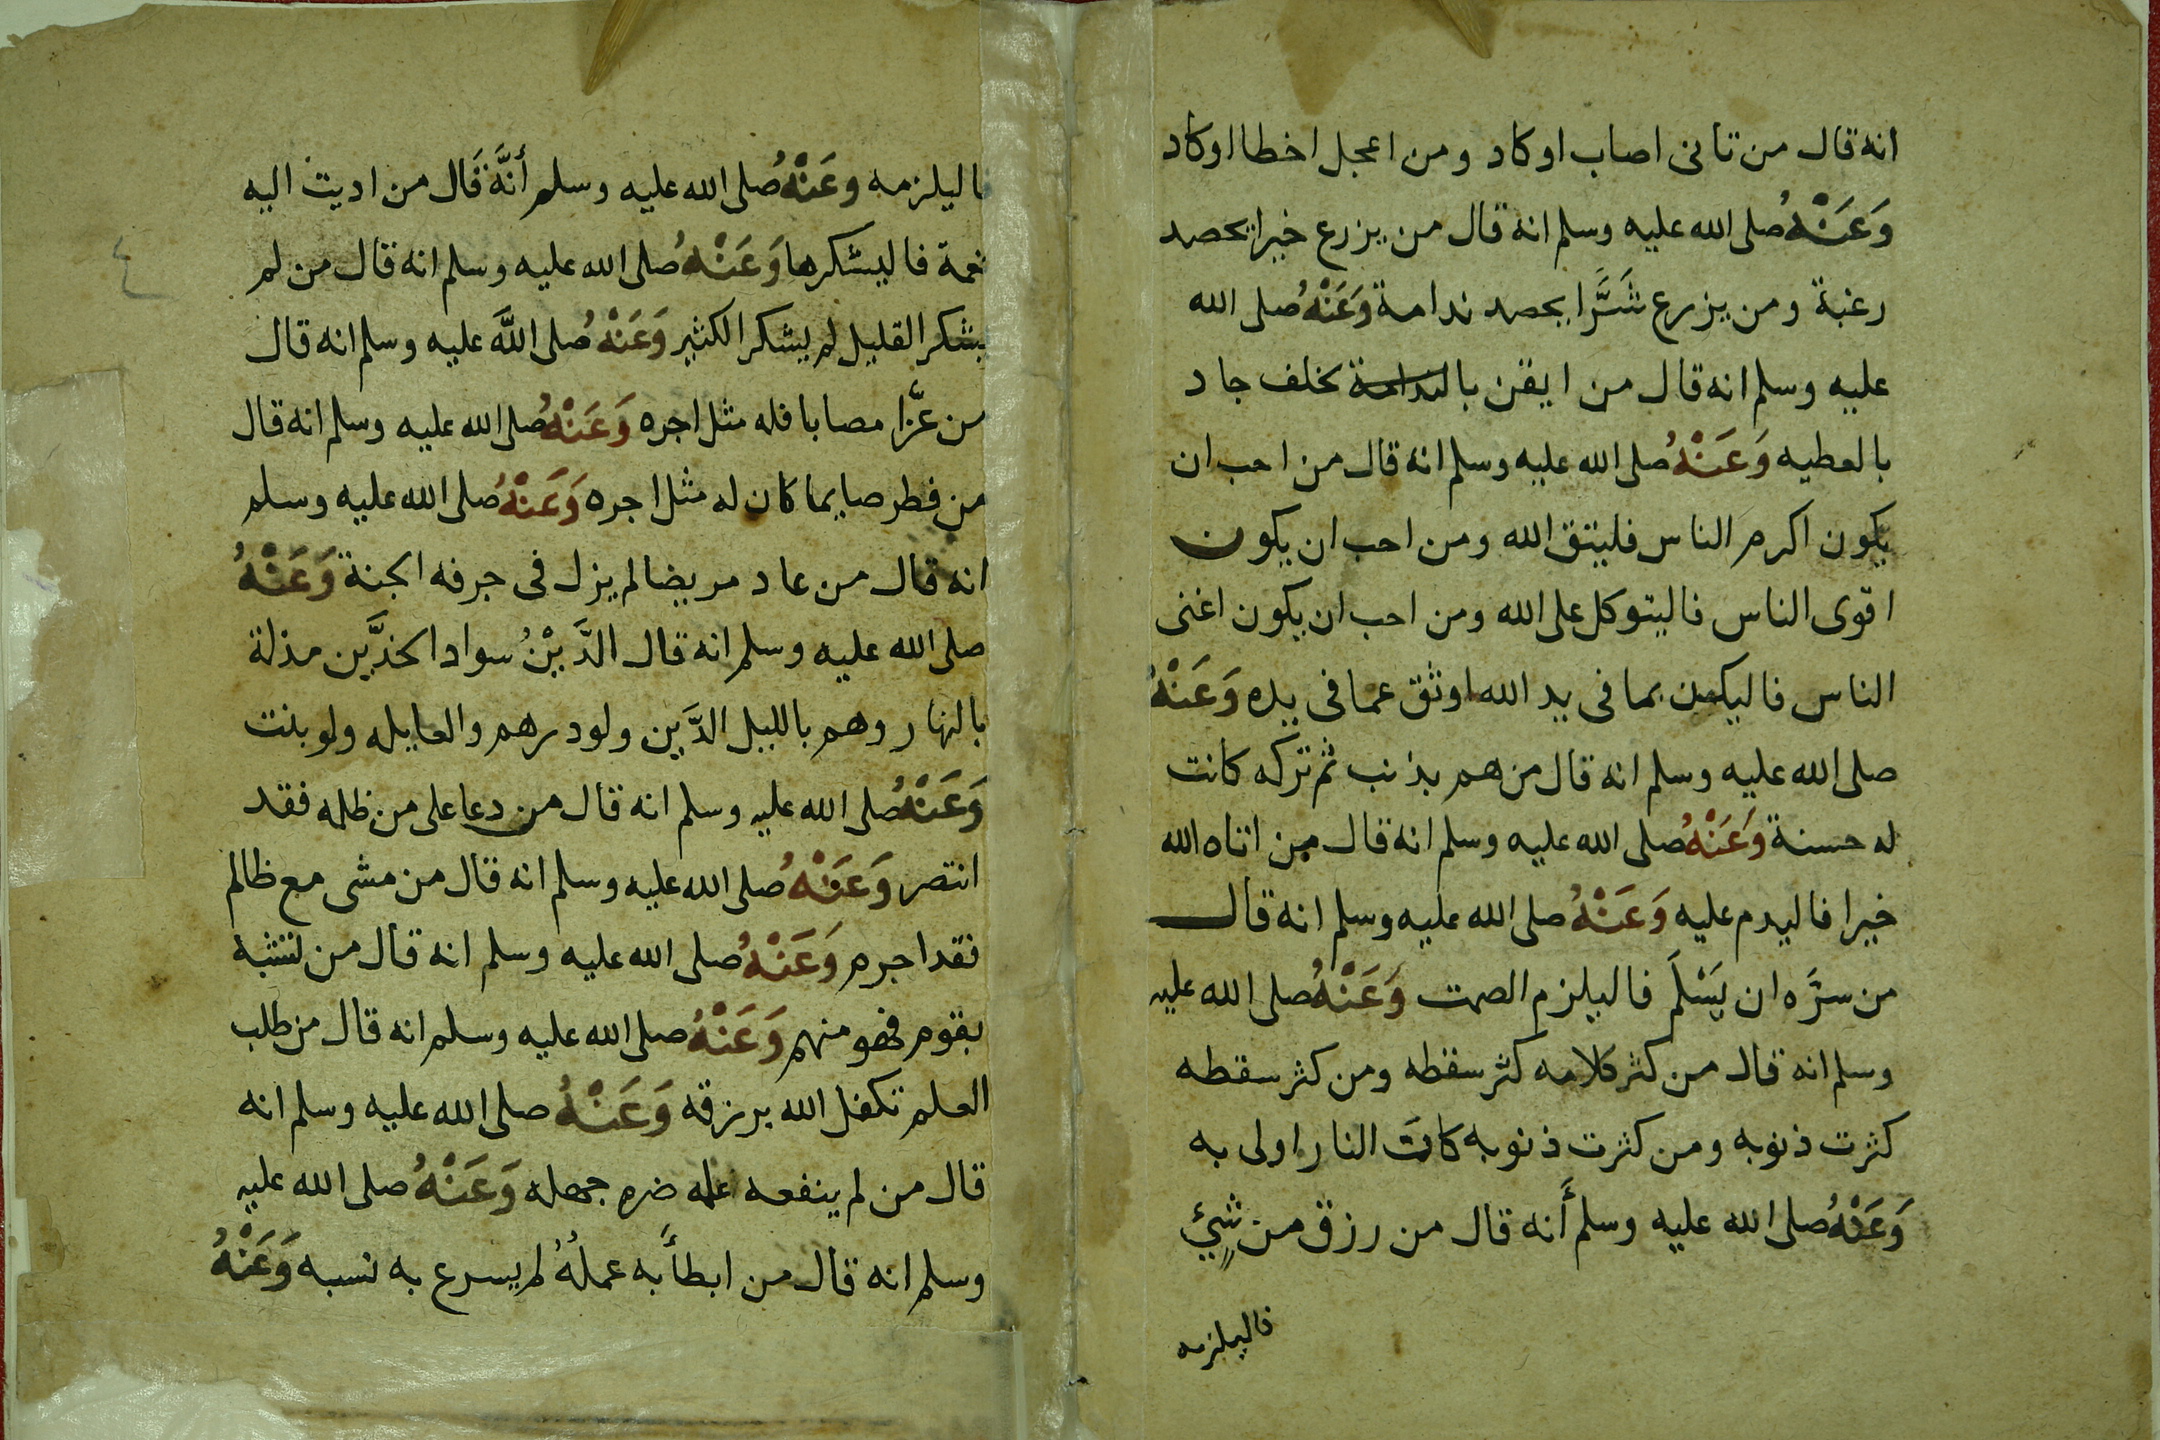 انه قال من تانى اصاب اوكاد ومن اعجل اخطا اوكاد
وَعَنْهُ صلى الله عليه وسلم انه قال من يزرع خيرا يحصد
رغبة ومن يزرع شَرًّا يحصد ندامة وَعَنْهُ صلى الله
عليه وسلم انه قال من ايقن بالندامة يخلف جاد
بالعطيه وَعَنْهُ صلى الله عليه وسلم انه قال من احب ان
يكون اكرم الناس فليتق الله ومن احب ان يكون
اقوى الناس فاليتوكل على الله ومن احب ان يكون اغنى
الناس فاليكن بما فى يد الله اوثق عما فى يده وَعَنْهُ
صلى الله عليه وسلم انه قال من هم بذنب ثم تركه كانت
له حسنة وَعَنْهُ صلى الله عليه وسلم انه قال من اتاه الله
خيرا فاليدم عليه وَعَنْهُ صلى الله عليه وسلم انه قال
من سرَّه ان يَسْلَمَ فاليلزم الصمت وَعَنْهُ صلى الله عليه
وسلم انه قال من كثر كلامه كثر سقطه ومن كثر سقطه
كثرت ذنوبه ومن كثرت ذنوبه كانت النار اولى به
وَعَنْهُ صلى الله عليه وسلم أنه قال من رزق من شيئ
فاليلزمه
فاليلزمه وعَنْهُ صلى الله عليه وسلم أنَّهَ قَال من اديت اليه
نعمة فاليشكرها وَعَنْهُ صلى الله عليه وسلم انه قال من لم
يشكر القليل لم يشكر الكثير وَعَنْهُ صلى اللَّه عليه وسلم انه قال
من عزّا مصابا فله مثل اجره وَعَنْهُ صلى الله عليه وسلم انه قال
من فطر صايما كان له مثل اجره وَعَنْهُ صلى الله عليه وسلم
انه قال من عاد مريضا لم يزل فى جرفه الجنة وَعَنْهُ
صلى الله عليه وسلم انه قال الدَّيْنُ سواد الخدَّين مذلة
بالنهار وهم بالليل الدَّين ولو درهم والعايله ولو بنت
وَعَنْهُ صلى الله عليه وسلم انه قال من دعا على من ظلمه فقد
انتصر وَعَنْهُ صلى الله عليه وسلم انه قال من مشى مع ظالم
فقد اجرم وَعَنْهُ صلى الله عليه وسلم انه قال من تشبه
بقوم فهو منهم وَعَنْهُ صلى الله عليه وسلم انه قال من طلب
العلم تكفل الله برزقه وَعَنْهُ صلى الله عليه وسلم انه
قال من لم ينفعه علمه ضره جهله وَعَنْهُ صلى الله عليه
وسلم انه قال من ابطأَ به عملهُ لم يسرع به نسبه وَعَنْهُ